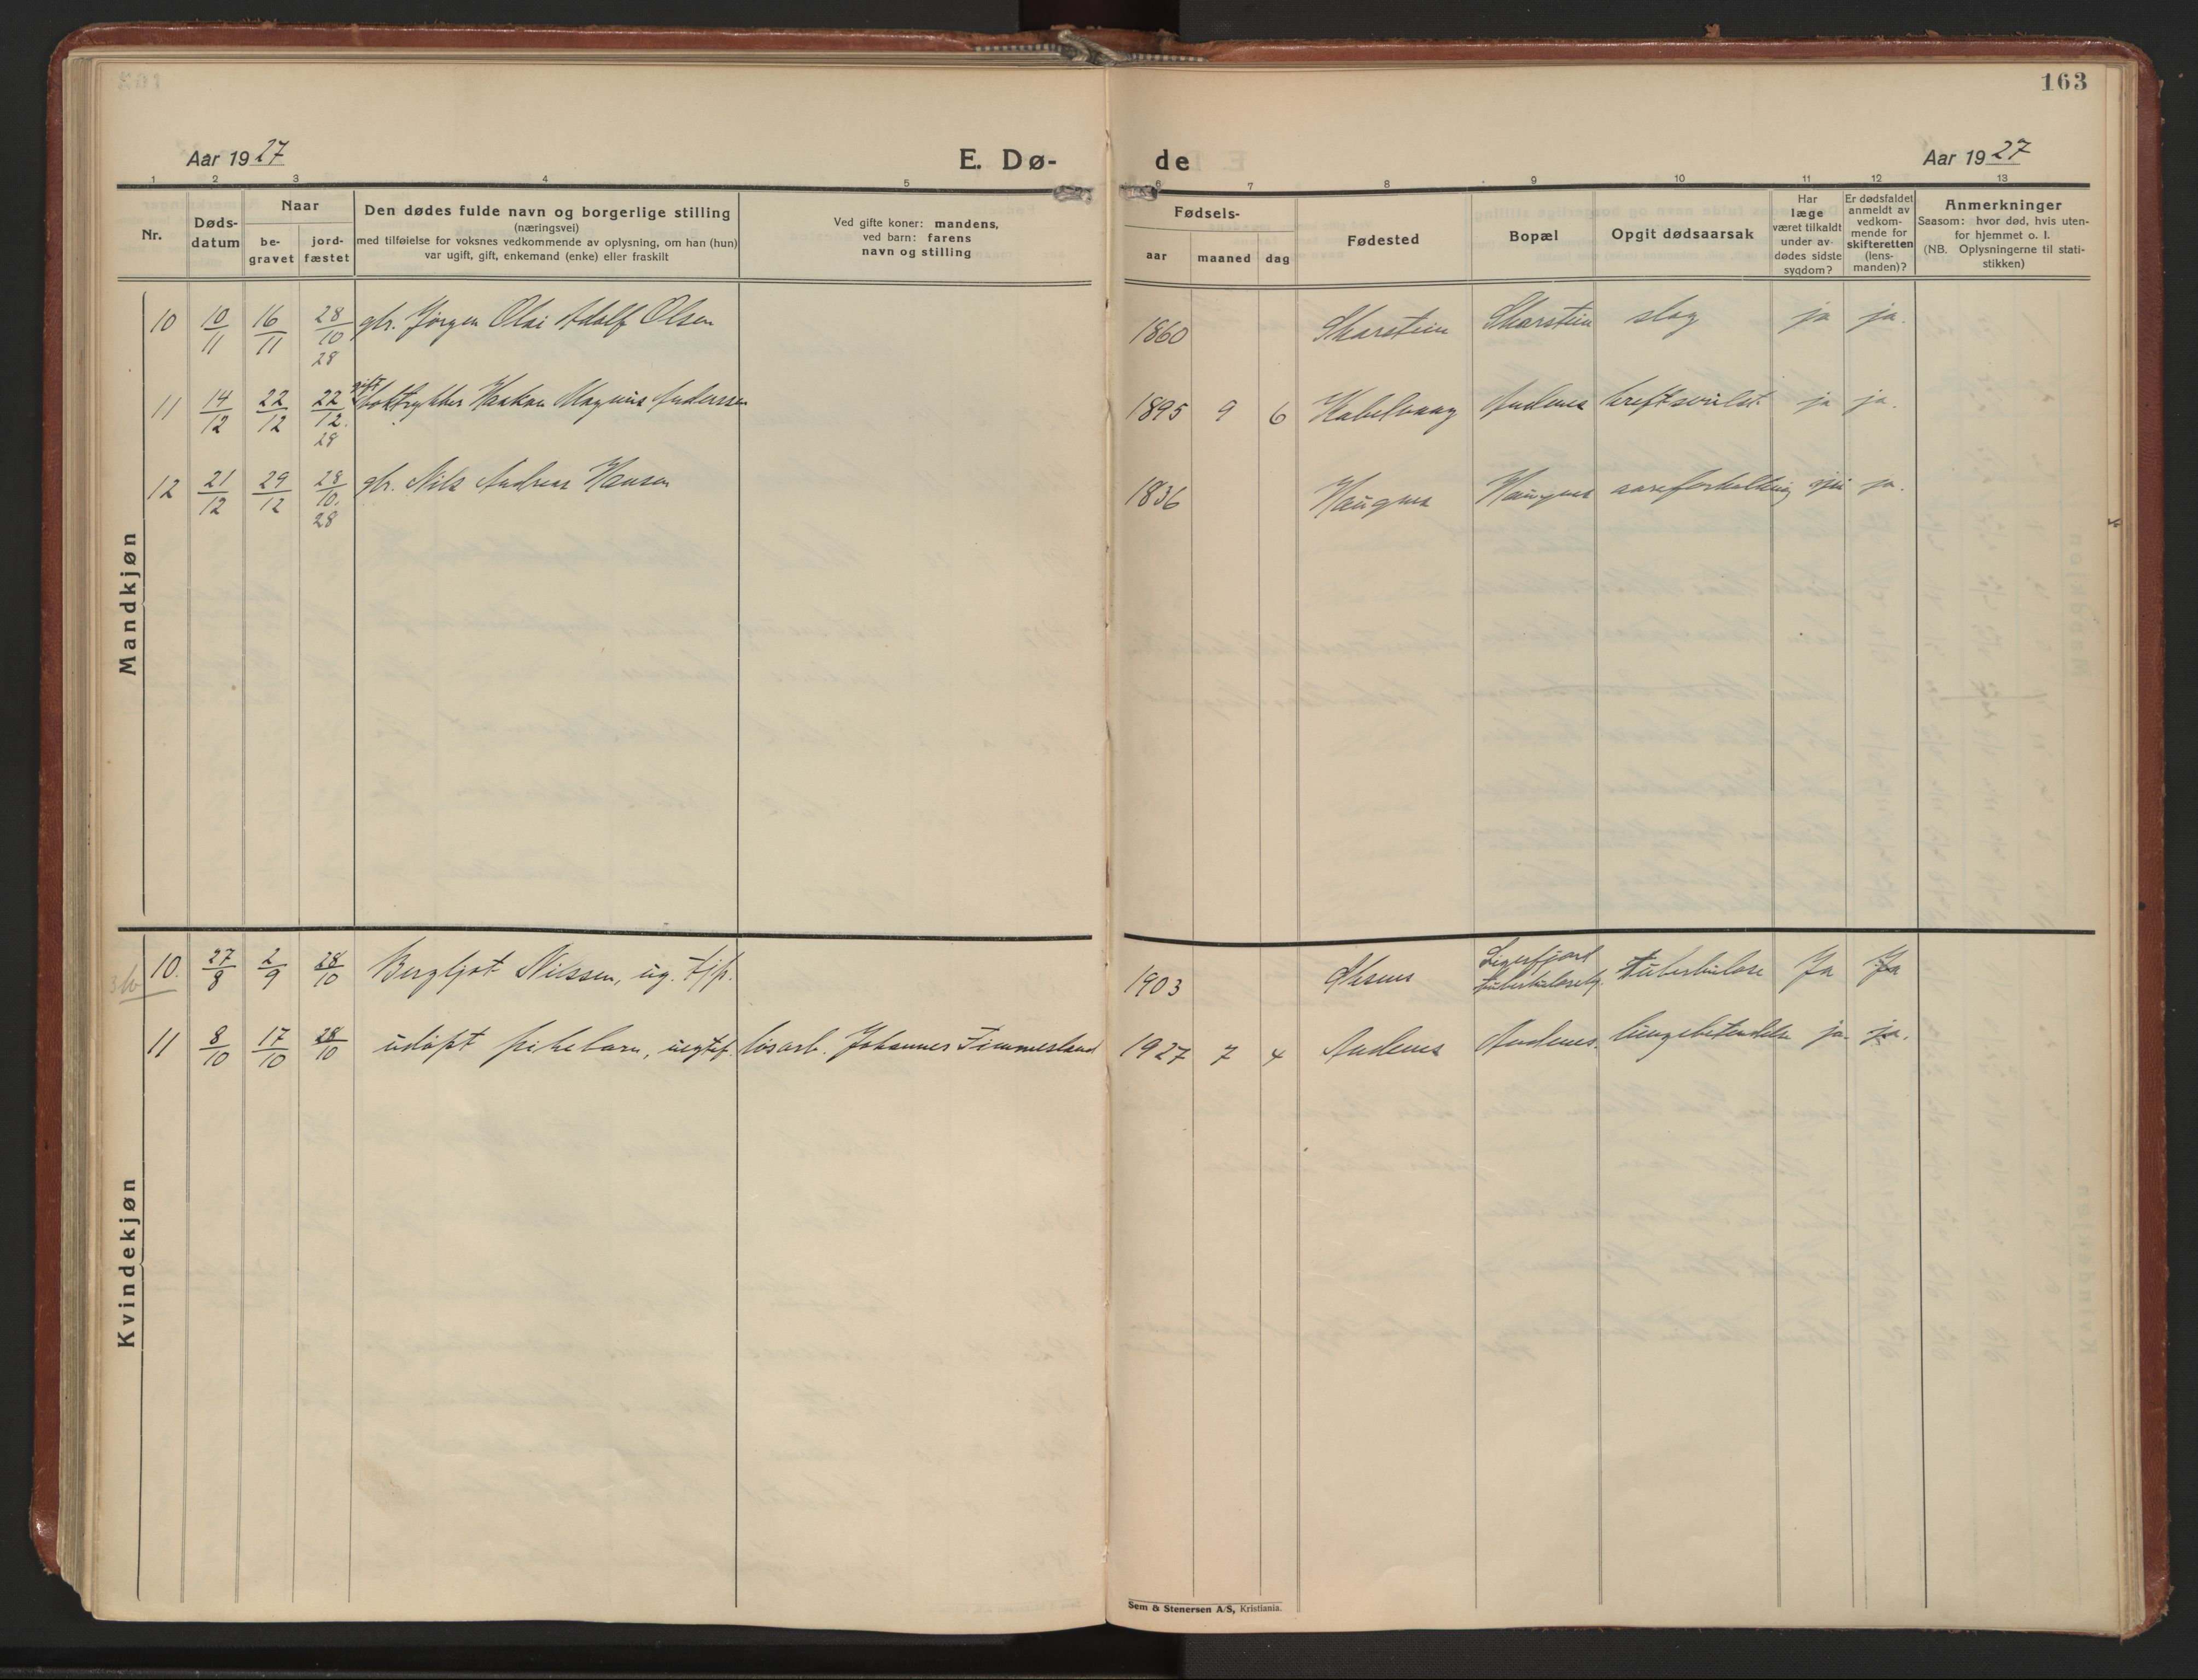 163
Aar 1927
E. Dø-
de
Aar 1927
1 2 3 4 5 6 7 8 9 10 11 12 13
Nr.
Døds-
datum
Naar
be-
gravet
jord-
fæstet
Den dødes fulde navn og borgerlige stilling
(næringsvei)
med tilføielse for voksnes vedkommende av oplysning, om han (hun)
var ugift, gift, enkemand (enke) eller fraskilt
Ved gifte koner: mandens,
ved barn: farens
navn og stilling
Fødsels-
aar maaned dag
Fødested
Bopæl
Opgit dødsaarsak
Har
læge
været tilkaldt
under av-
dødes sidste
sygdom?
Er dødsfaldet
anmeldt av
vedkom-
mende for
skifteretten
(lens-
manden)?
Anmerkninger
Saasom: hvor død, hvis uten-
for hjemmet o. l.
(NB. Oplysningerne til stati-
stikken)
Mandkjøn
10 10/11 16/11 28/10 28 gbr. Jørgen Olai Adolf Olsen 1860 Skarstein Skarstein slag ja ja.
11 14/12 22/12 22/12. 28 gift boktrykker Haakon Magnus Anderssen 1895 9 6 Kabelvaag Andenes kreftsvulst ja ja.
12 21/12 29/12 28/10. 28 gbr. Nils Andreas Hansen 1836 Haugnes Haugnes aareforkalkning nei ja.
Kvindekjøn
10. 27/8 2/9 28/10 Bergljot Nilssen, ug. tjp. 1903 Aknes tuberkulose Ja Ja
11 8/10 17/10 28/10 udøpt pikebarn, uegtef. løsarb. Johannes Timmesland 1927 7 4 Andenes Andenes. lungebetendelse ja. ja.
Sem & Stenersen A/S, Kristiania.